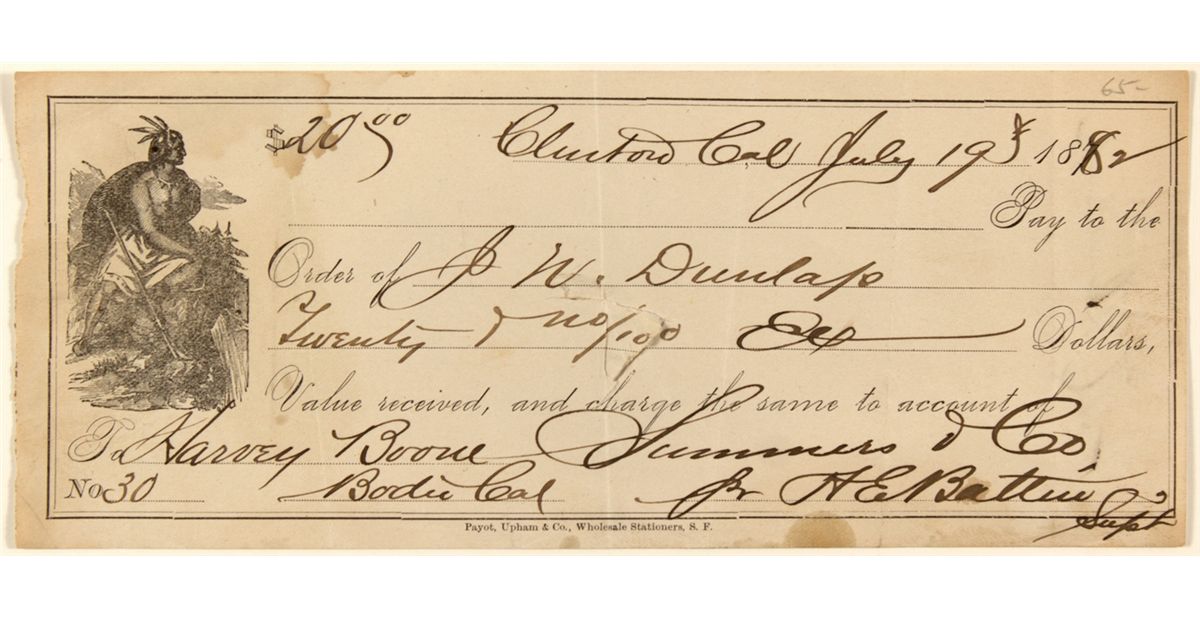 65-
$20 00 Clinton Cal July 19th 1882
Pay to the
Order of J W. Dunlap
Twenty & no/100 Dollars,
Value received, and charge the same to account of
To Harvey Boone Summers & Co
No. 30 Bodie Cal pr H E Battin
Supt
Payot, Upham & Co., Wholesale Stationers, S. F.